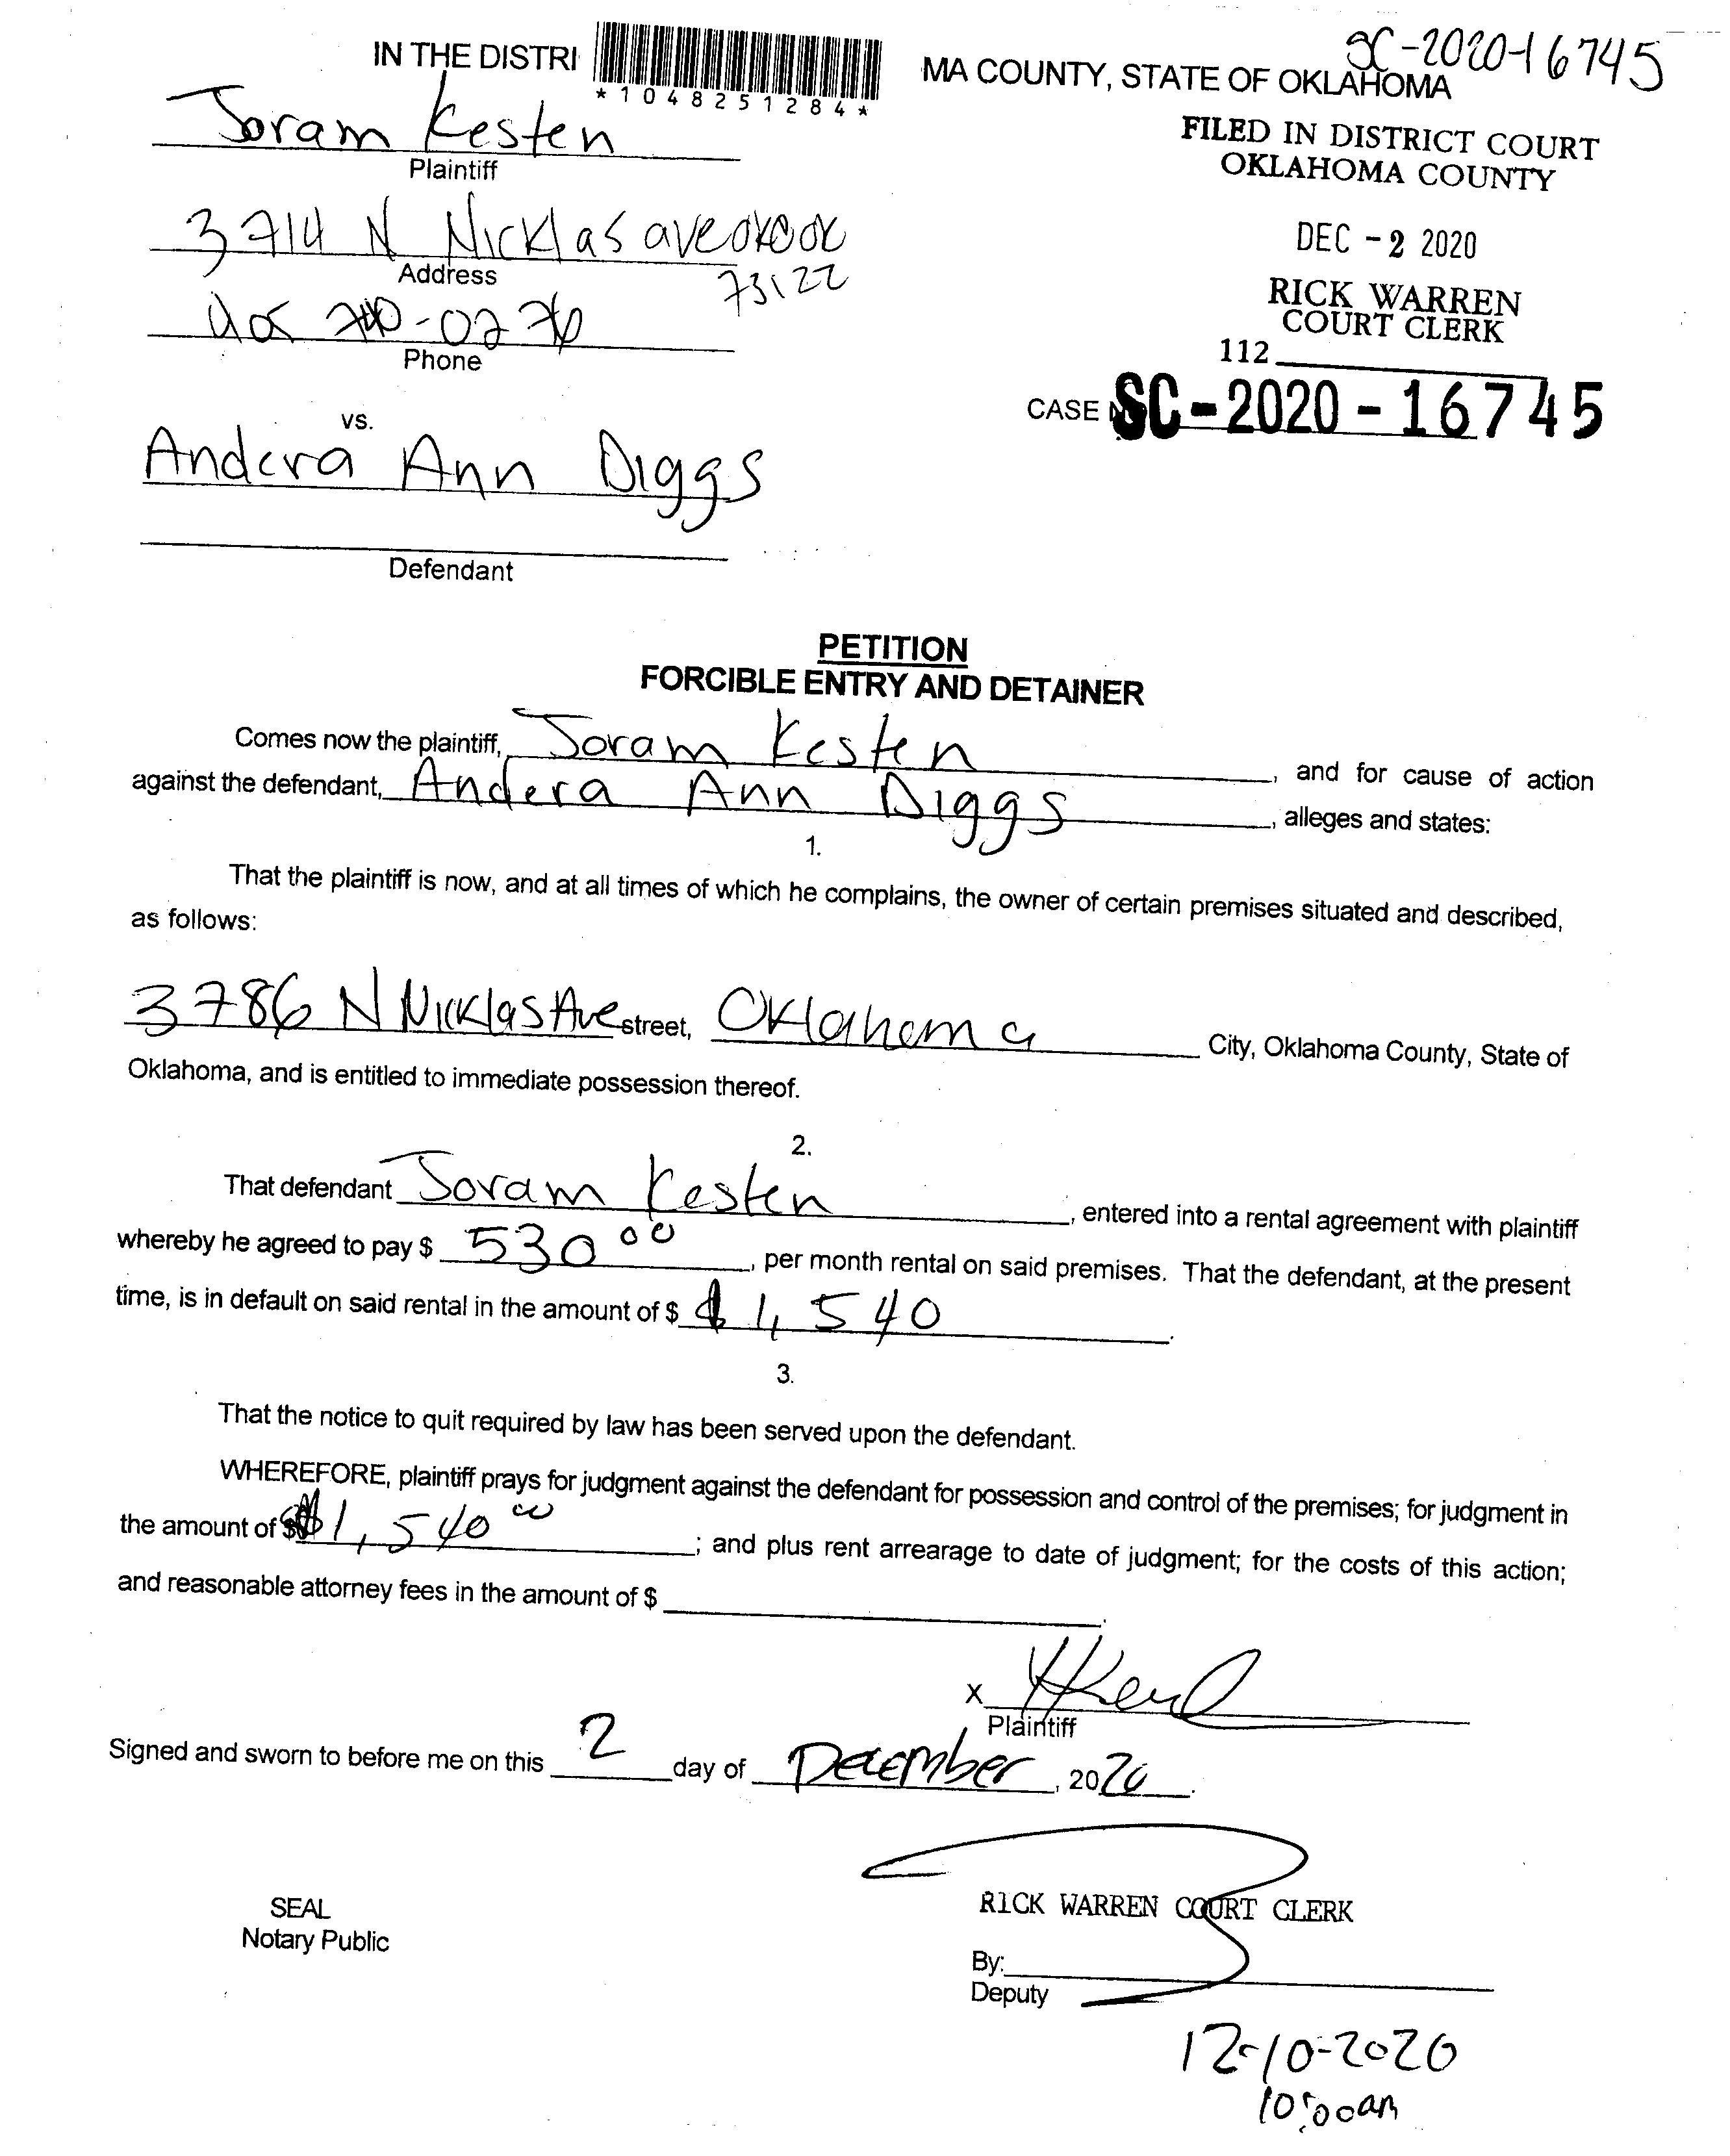 SC-2020-16745
IN THE DISTRI MA COUNTY, STATE OF OKLAHOMA
*1048251284*
Joram Kesten
Plaintiff
FILED IN DISTRICT COURT
OKLAHOMA COUNTY
3714 N Nicklas ave
Address
73122
DEC - 2 2020
RICK WARREN
COURT CLERK
Phone
112
CASE SC-2020-16745
vs.
Andera Ann Diggs
Defendant
PETITION
FORCIBLE ENTRY AND DETAINER
Comes now the plaintiff, Joram Kesten, and for cause of action
against the defendant, Andera Ann Diggs, alleges and states:
1.
That the plaintiff is now, and at all times of which he complains, the owner of certain premises situated and described,
as follows:
3786 N Nicklas Ave street, Oklahoma City, Oklahoma County, State of
Oklahoma, and is entitled to immediate possession thereof.
2.
That defendant Joram Kesten, entered into a rental agreement with plaintiff
whereby he agreed to pay $ 530 00, per month rental on said premises. That the defendant, at the present
time, is in default on said rental in the amount of $ $ 1,540.
3.
That the notice to quit required by law has been served upon the defendant.
WHEREFORE, plaintiff prays for judgment against the defendant for possession and control of the premises; for judgment in
the amount of $ 1,540 00; and plus rent arrearage to date of judgment; for the costs of this action;
and reasonable attorney fees in the amount of $ .
X
Plaintiff
Signed and sworn to before me on this 2 day of December, 2020.
SEAL
Notary Public
RICK WARREN COURT CLERK
By:
Deputy
12-10-2020
10:00am